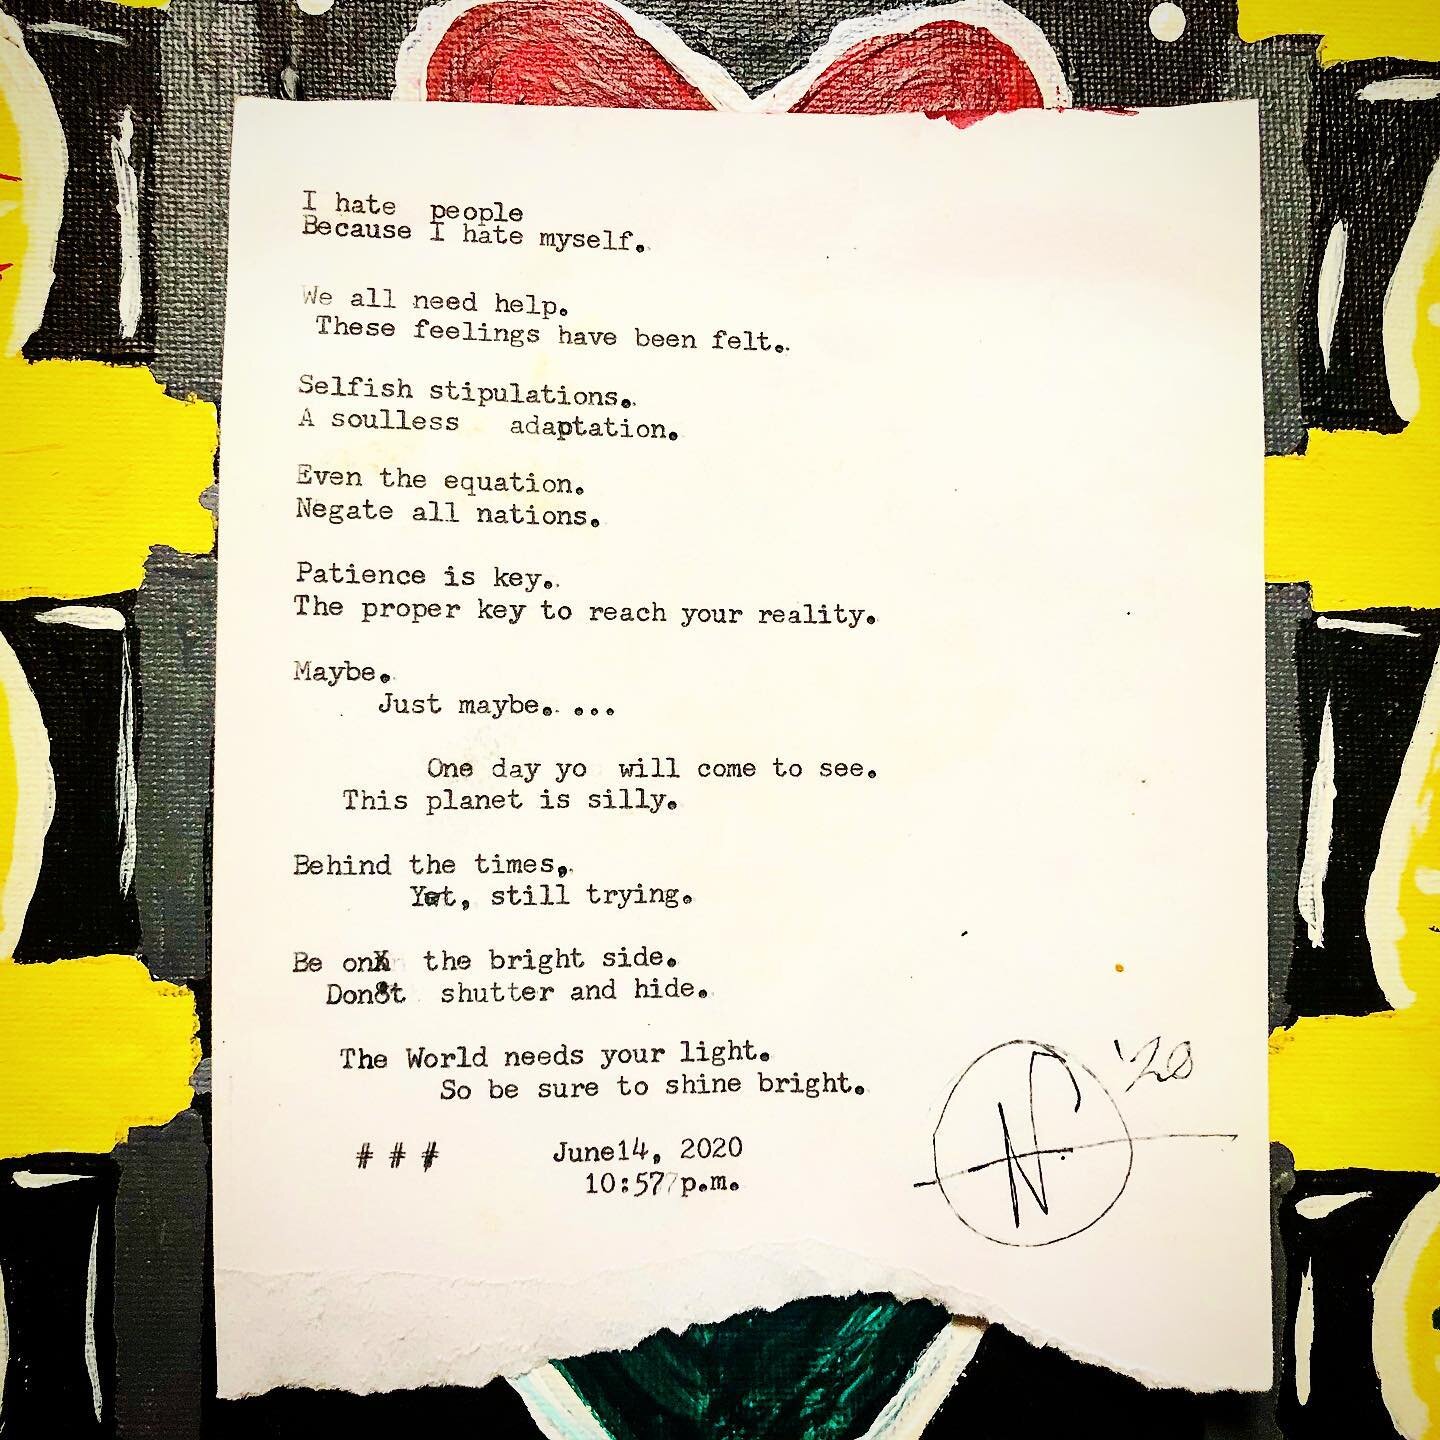 I hate people
Because I hate myself.
We all need help.
These feelings have been felt.
Selfish stipulations.
A soulless adaptation.
Even the equation.
Negate all nations.
Patience is key.
The proper key to reach your reality.
Maybe.
Just maybe. ...
One day yo will come to see.
This planet is silly.
Behind the times,
Yet, still trying.
Be on the bright side.
Don't shutter and hide.
The World needs your light.
So be sure to shine bright.
# # # June14, 2020
10:57 p.m.
N. '20